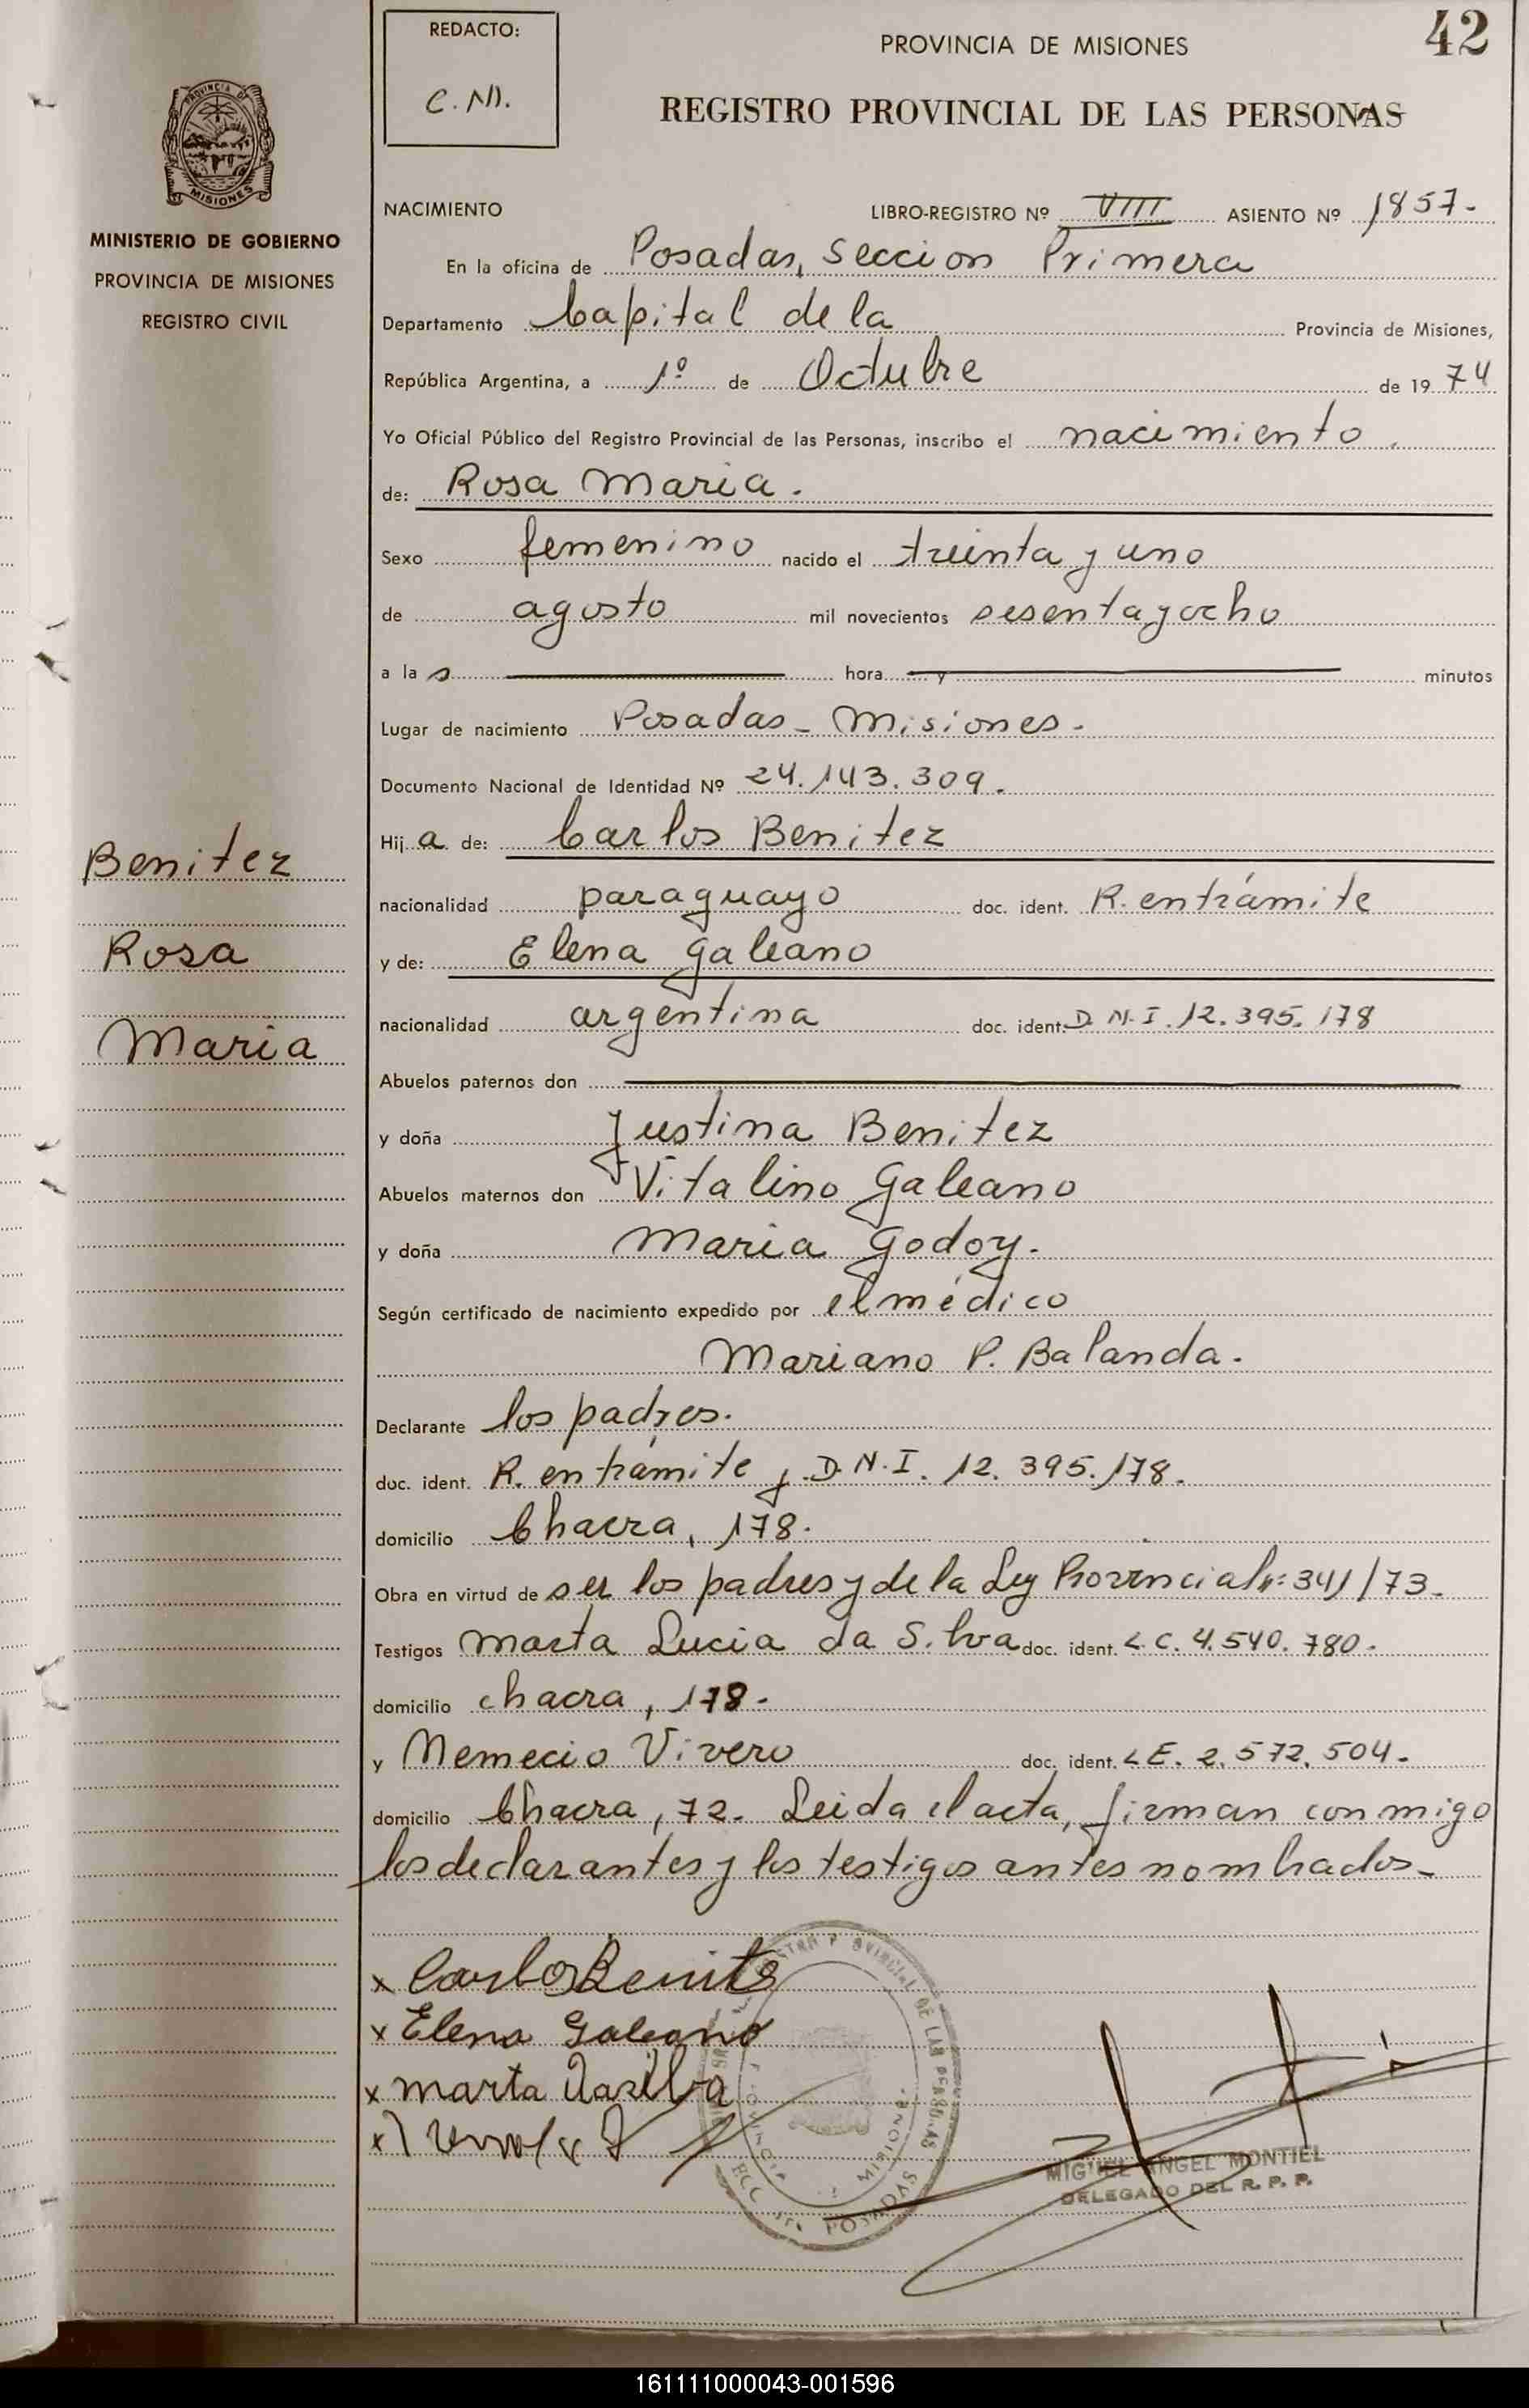 REDACTO:
C. M.
42
PROVINCIA DE MISIONES
REGISTRO PROVINCIAL DE LAS PERSONAS
PROVINCIA DE
MISIONES
MINISTERIO DE GOBIERNO
PROVINCIA DE MISIONES
REGISTRO CIVIL
NACIMIENTO LIBRO-REGISTRO Nº VIII ASIENTO Nº 1857-
En la oficina de Posadas, Seccion Primera
Departamento Capital de la Provincia de Misiones,
República Argentina, a 1º de Octubre de 19 74
Yo Oficial Público del Registro Provincial de las Personas, inscribo el nacimiento.
de: Rosa Maria.
Sexo femenino nacido el treinta y uno
de agosto mil novecientos sesenta y ocho
a la s hora y minutos
Lugar de nacimiento Posadas - Misiones -
Documento Nacional de Identidad Nº 24.143.309.
Hij a de: Carlos Benitez
nacionalidad paraguayo doc. ident. R. en trámite
y de: Elena Galeano
nacionalidad argentina doc. ident. D.N.I. 12.395.178
Abuelos paternos don
y doña Justina Benitez
Abuelos maternos don Vitalino Galeano
y doña Maria Godoy.
Según certificado de nacimiento expedido por el médico
Mariano P. Balanda.
Declarante los padres.
doc. ident. R. en trámite y D.N.I. 12.395.178.
domicilio Chacra, 178.
Obra en virtud de ser los padres y de la Ley Provincial nº 341/73-
Testigos Marta Lucia da Silva doc. ident. L.C. 4.540.780-
domicilio chacra, 178-
y Nemecio Vivero doc. ident. L E. 2.572.504-
domicilio Chacra, 72- Leida el acta, firman conmigo
los declarantes y los testigos antes nombrados-
Benitez
Rosa
Maria
x Carlos Benite
x Elena Galeano
x marta Dasilva
x
MIGUEL ANGEL MONTIEL
DELEGADO DEL R. P. P.
161111000043-001596